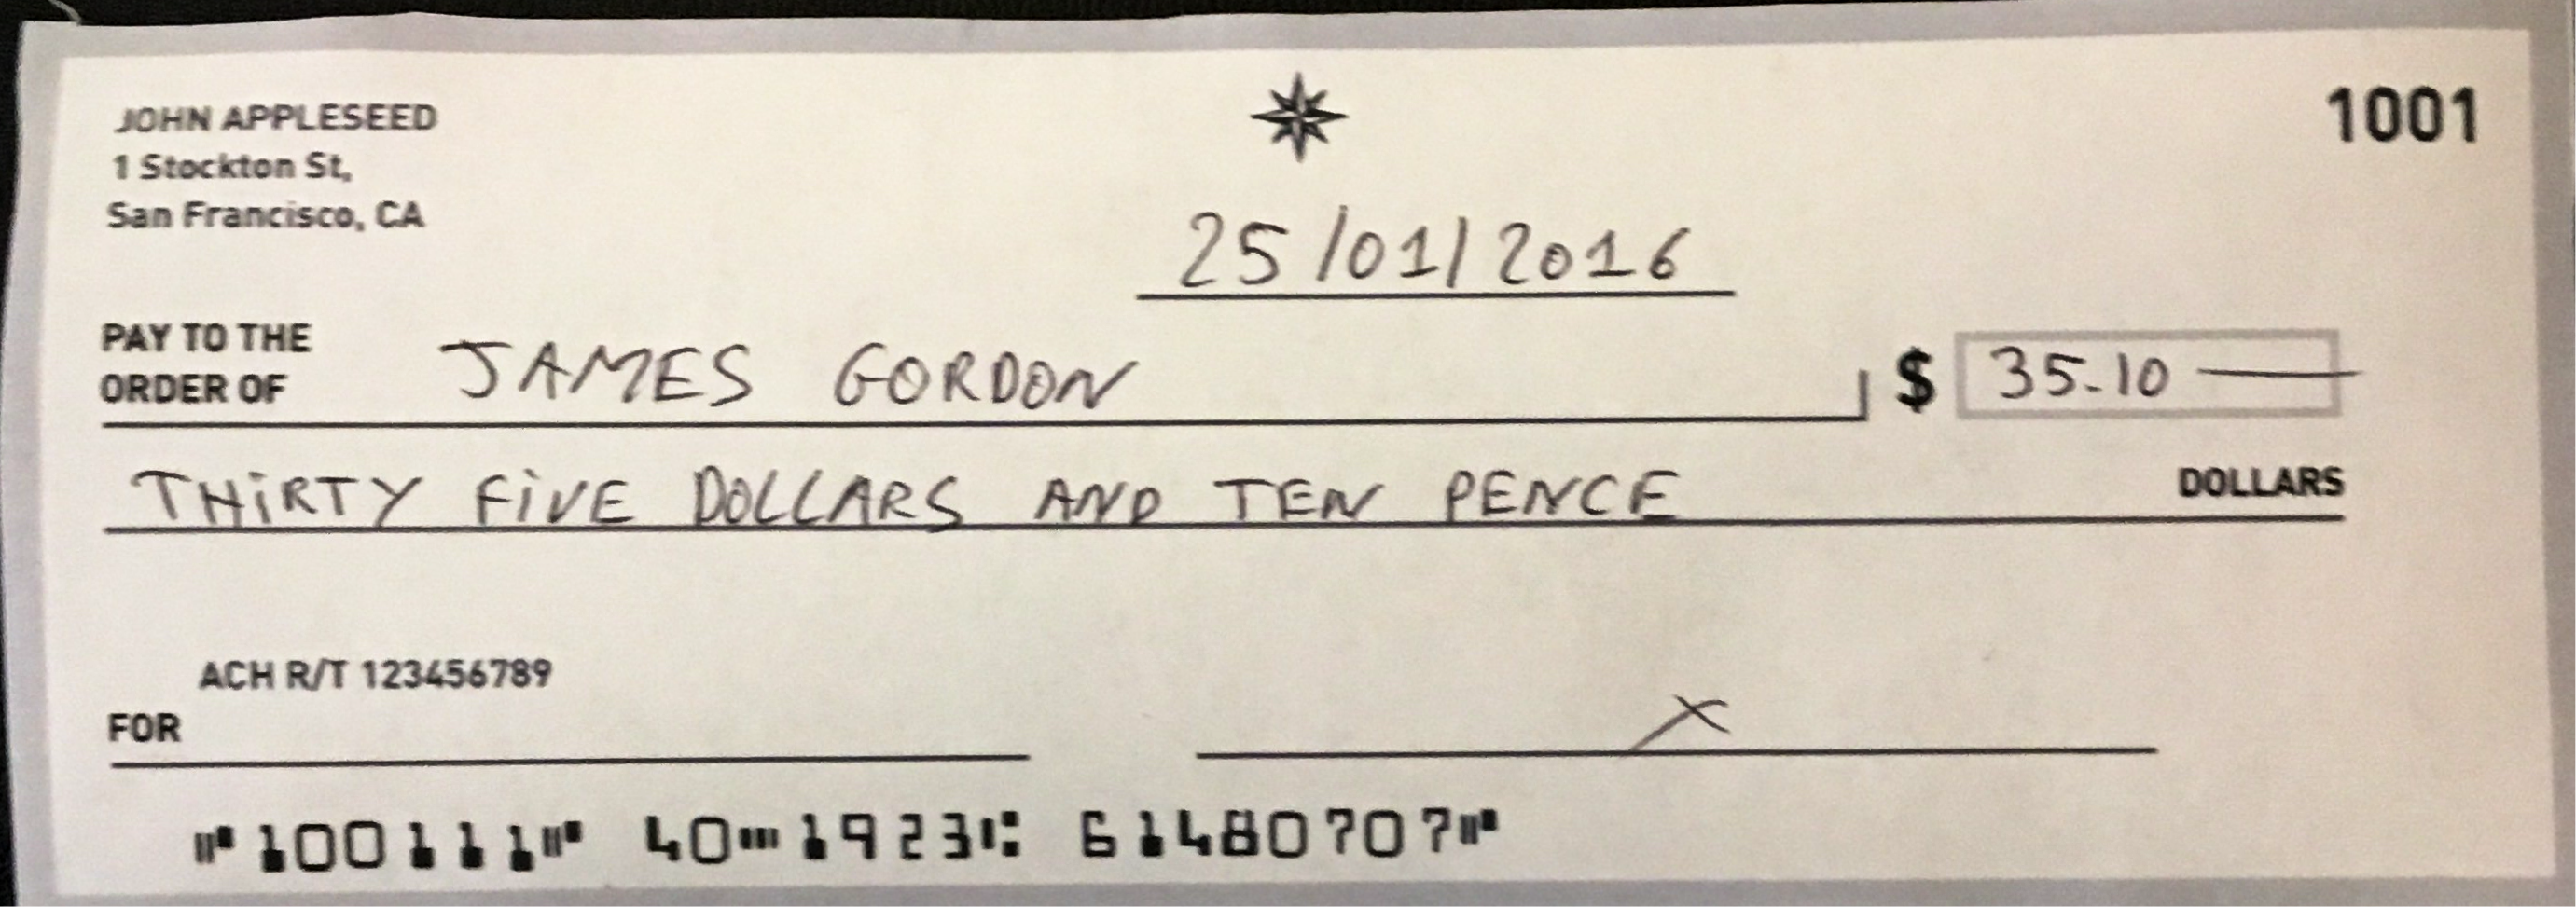 JOHN APPLESEED
1 Stockton St,
San Francisco, CA
1001
25/01/2016
PAY TO THE
ORDER OF JAMES GORDON $ 35.10
THIRTY FIVE DOLLARS AND TEN PENCE DOLLARS
ACH R/T 123456789
FOR
X
⑈100111⑈ 40⑉1923⑆ 61480707⑈